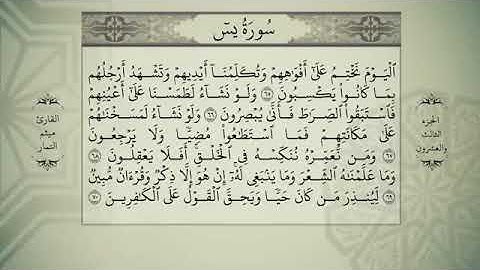 سُورَةُ يسٓ
ٱلْيَوْمَ نَخْتِمُ عَلَىٰٓ أَفْوَٰهِهِمْ وَتُكَلِّمُنَآ أَيْدِيهِمْ وَتَشْهَدُ أَرْجُلُهُم
بِمَا كَانُوا۟ يَكْسِبُونَ ٦٥ وَلَوْ نَشَآءُ لَطَمَسْنَا عَلَىٰٓ أَعْيُنِهِمْ
فَٱسْتَبَقُوا۟ ٱلصِّرَٰطَ فَأَنَّىٰ يُبْصِرُونَ ٦٦ وَلَوْ نَشَآءُ لَمَسَخْنَٰهُمْ
عَلَىٰ مَكَانَتِهِمْ فَمَا ٱسْتَطَٰعُوا۟ مُضِيًّا وَلَا يَرْجِعُونَ
٦٧ وَمَن نُّعَمِّرْهُ نُنَكِّسْهُ فِى ٱلْخَلْقِ أَفَلَا يَعْقِلُونَ ٦٨
وَمَا عَلَّمْنَٰهُ ٱلشِّعْرَ وَمَا يَنۢبَغِى لَهُۥٓ إِنْ هُوَ إِلَّا ذِكْرٌ وَقُرْءَانٌ مُّبِينٌ
٦٩ لِّيُنذِرَ مَن كَانَ حَيًّا وَيَحِقَّ ٱلْقَوْلُ عَلَى ٱلْكَٰفِرِينَ ٧٠
الجزء
الثالث
والعشرون
القارئ
ميثم
التمار